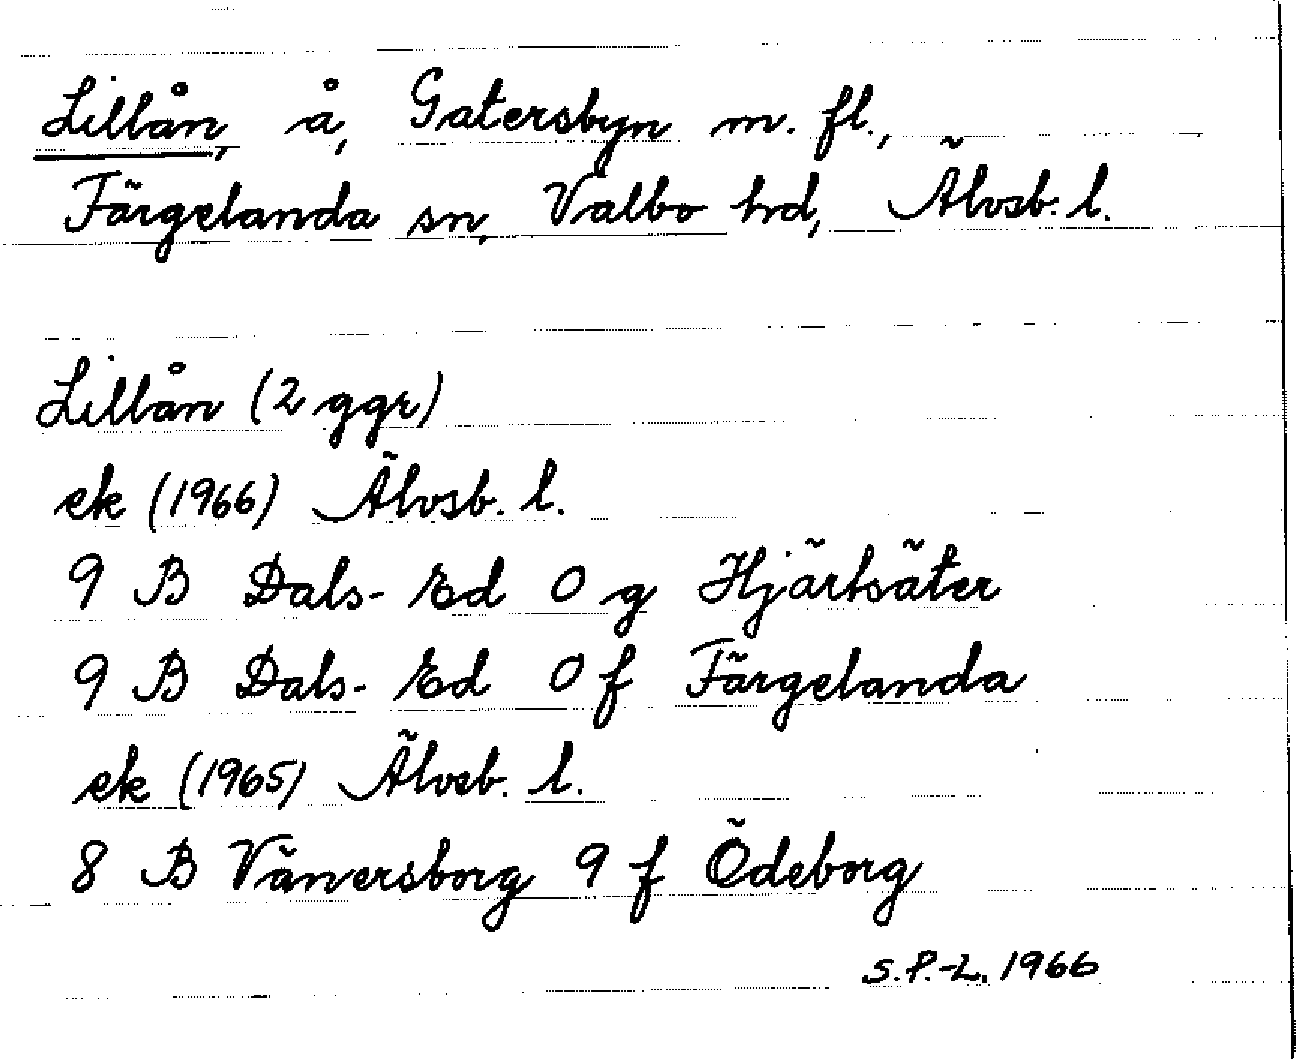 Lillån, å, Gatersbyn m. fl.,
Färgelanda sn, Valbo hd, Älvsb. l.
Lillån (2 ggr)
ek (1966) Älvsb. l.
9 B Dals-Ed 0 g Hjärtsäter
9 B Dals-Ed 0 f Färgelanda
ek (1965) Älvsb. l.
8 B Vänersborg 9 f Ödeborg
S.P.-L. 1966